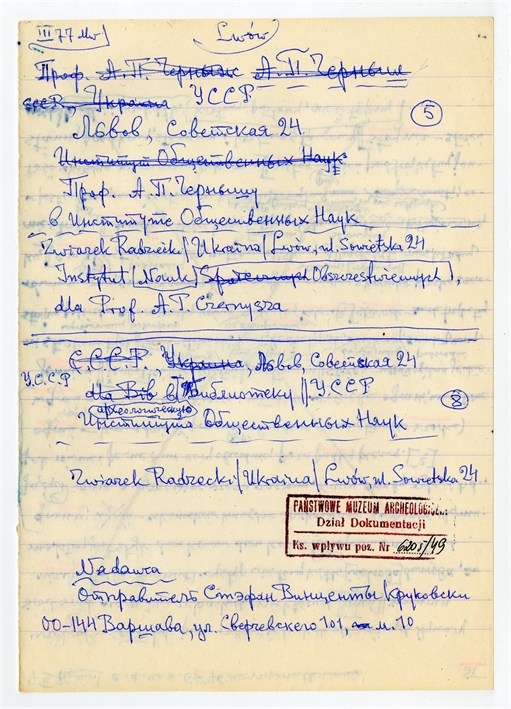 III 77 Lwów
Проф. А.П. Черныж А.П. Черныш
СССР, Украина УССР
5
Львов, Советская 24
Институт Общественных Наук
Проф. А П. Чернышу
в Институте Общественных Наук
Związek Radzecki / Ukraina / Lwów, ul. Sowietska 24
Instytut [Nauk] Społecznych Obszczestwiennych],
dla Prof. A.P. Czernysza
С.С.С.Р., Украина, Львов, Советская 24
У.С.С.Р
dla Bib в Библиотеку У.С.С.Р
8
археологическую
Института Общественных Наук
Związek Radzecki / Ukraina / Lwów, ul. Sowietska 24
PAŃSTWOWE MUZEUM ARCHEOLOGICZNE
Dział Dokumentacji
Ks. wpływu poz. Nr
Nadawca
Отправитель Стэфан Винценты Круковски
00-144 Варшава, ул. Сверчевскего 101, м. 10